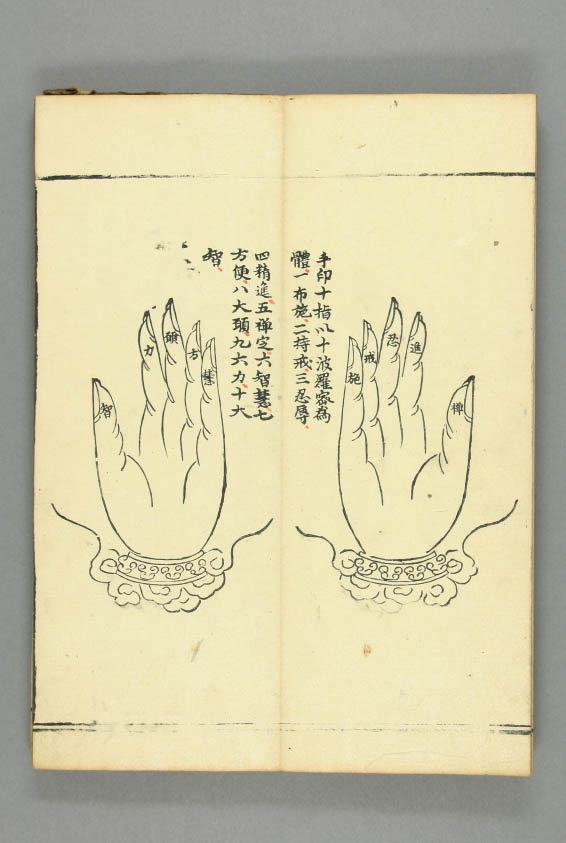 手印十指以十波羅密為
體一布施二持戒三忍辱
四精進五禅定六智慧七
方便八大願九大力十大
智
施
戒
忍
進
禅
慧
方
願
力
智